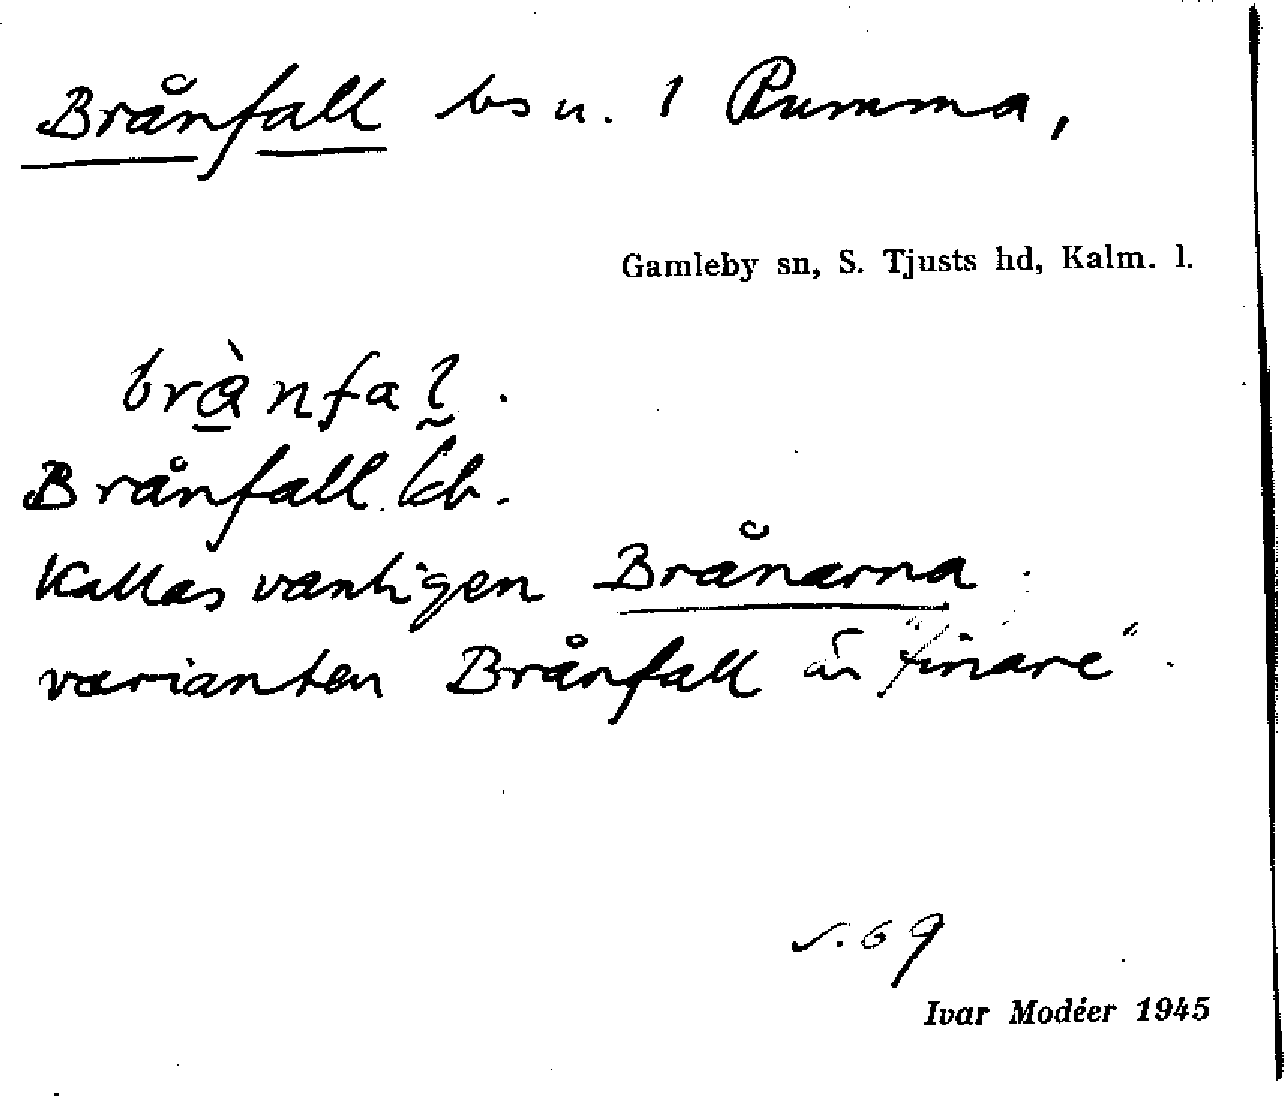 Brånfall bs u. 1 Rumma,
Gamleby sn, S. Tjusts hd, Kalm. l.
brànfal.
Brånfall kb.
Kallas vanligen Brånarna.
varianten Brånfall är "finare".
s. 69
Ivar Modéer 1945